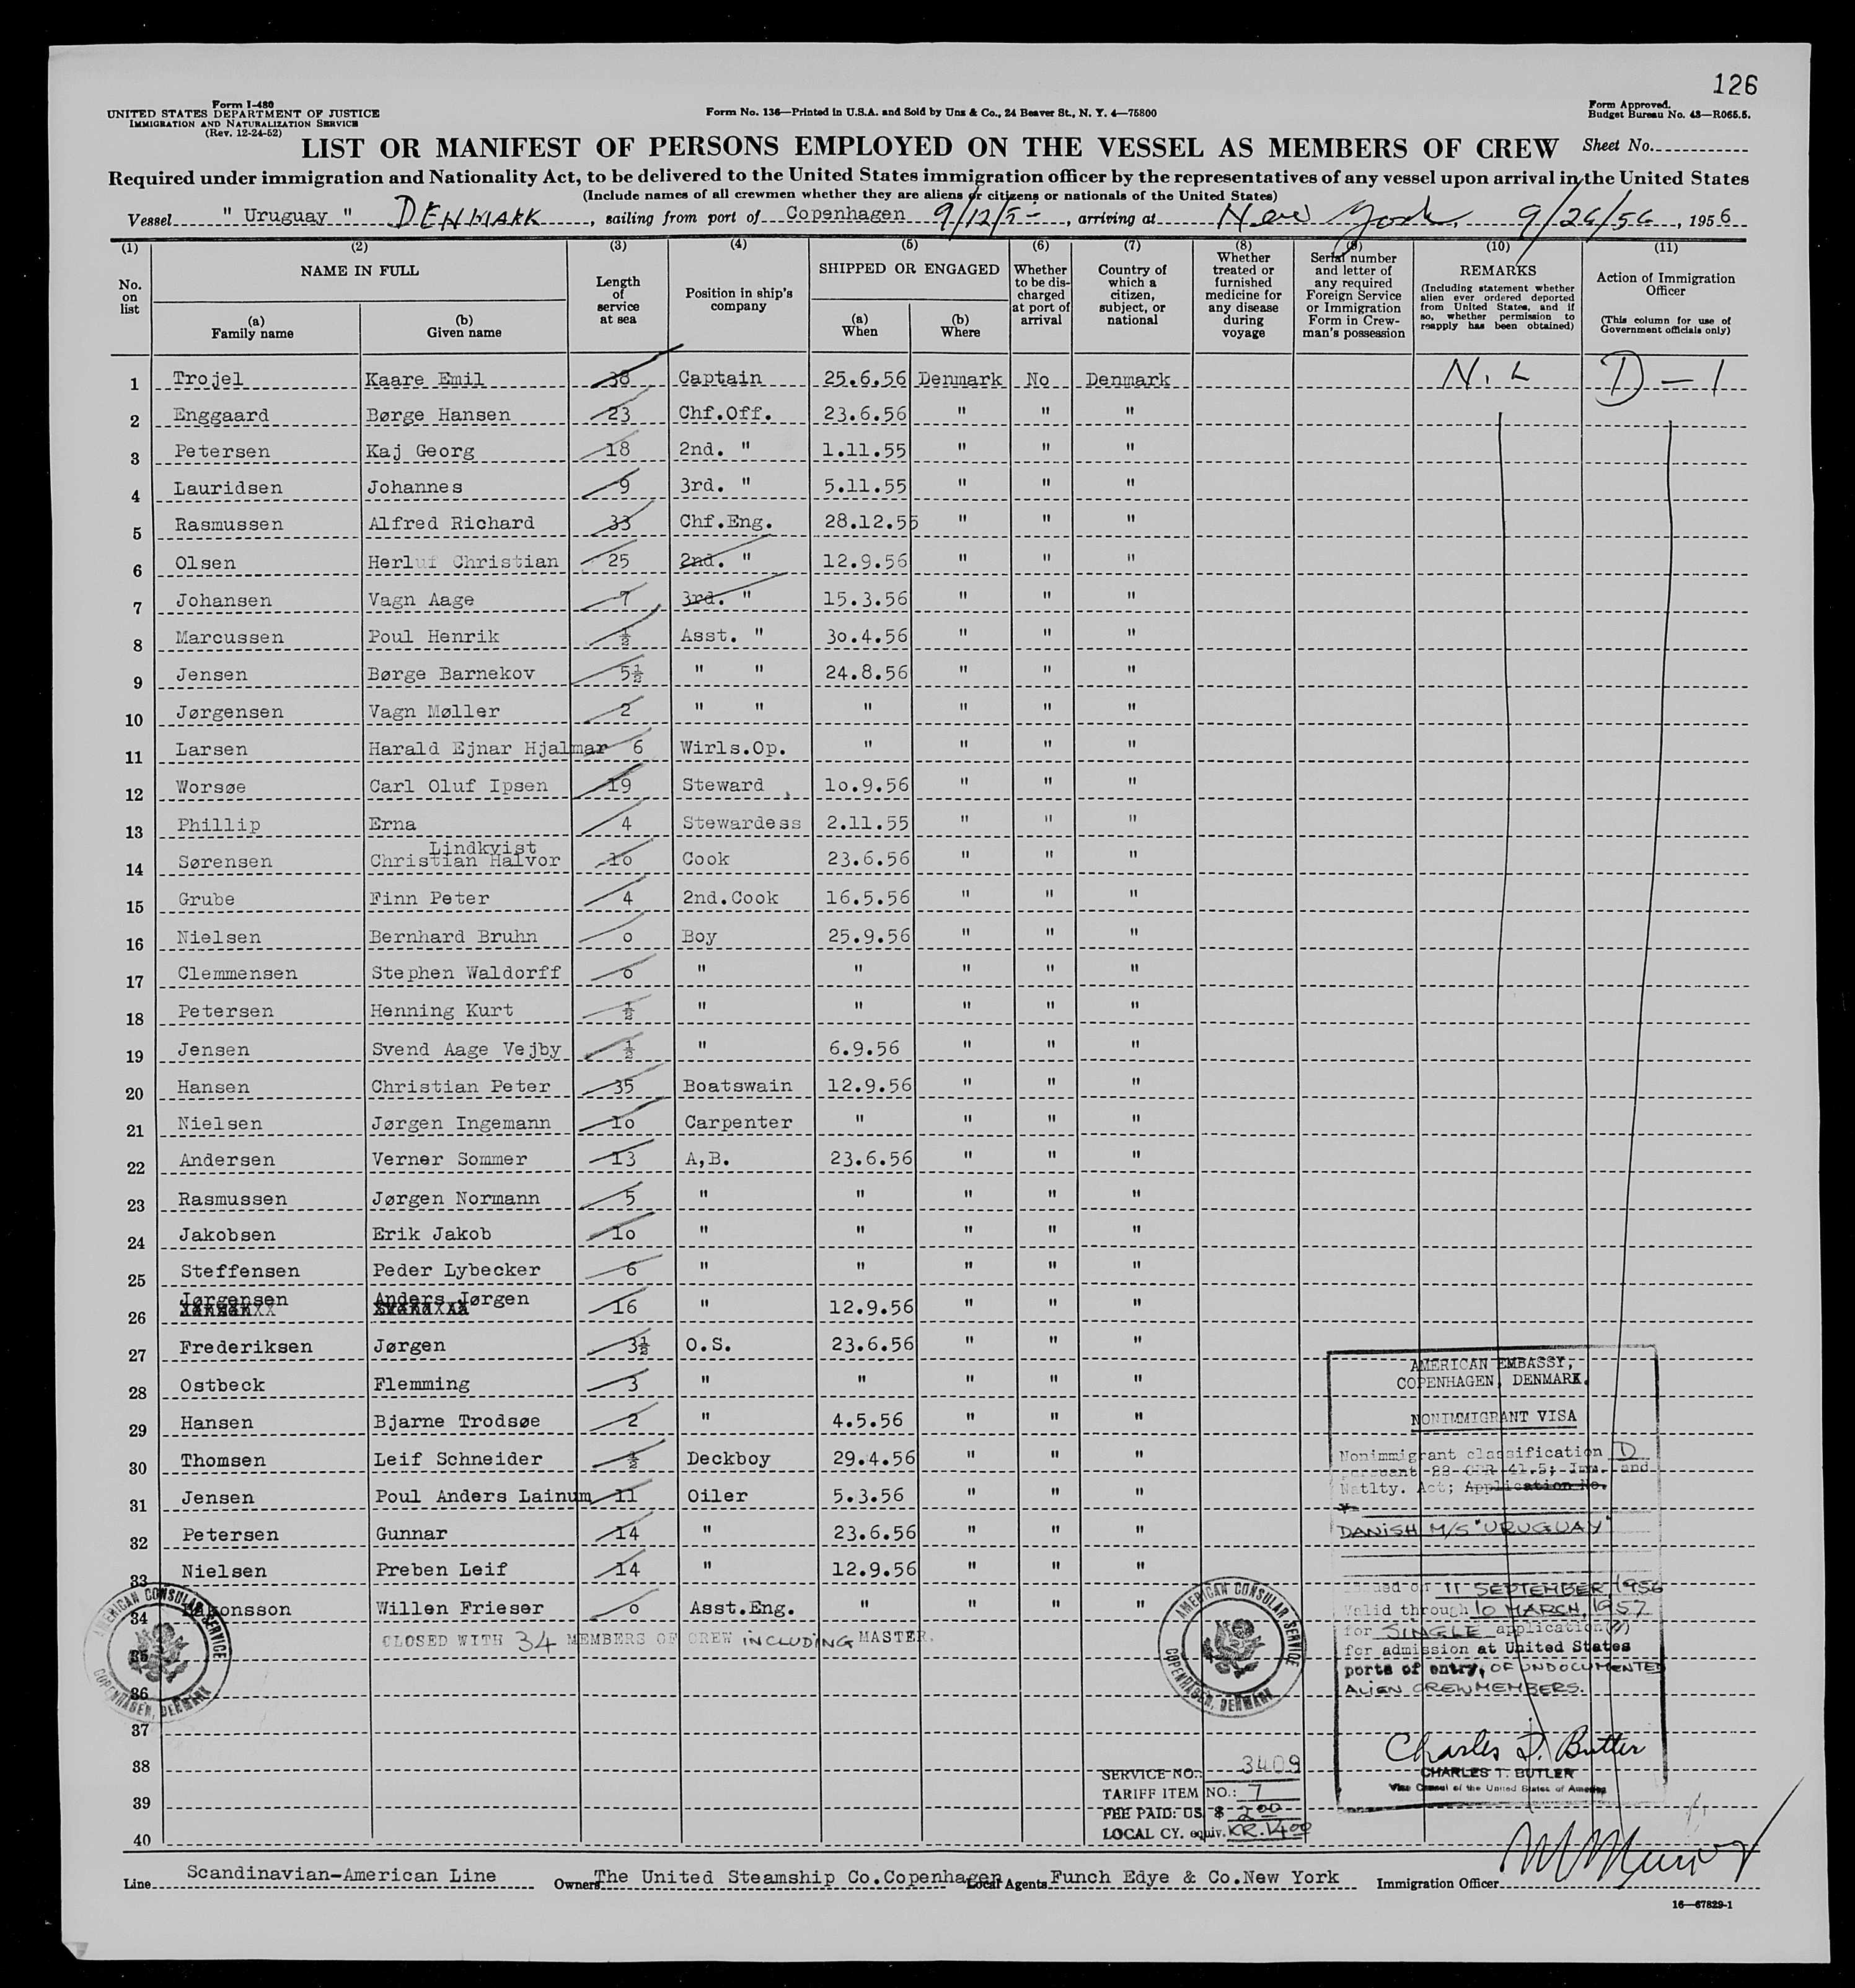 126
Form I-480
UNITED STATES DEPARTMENT OF JUSTICE
IMMIGRATION AND NATURALIZATION SERVICE
(Rev. 12-24-52)
Form No. 136—Printed in U.S.A. and Sold by Unz & Co., 24 Beaver St., N. Y. 4—75800
Form Approved.
Budget Bureau No. 43—R065.5.
LIST OR MANIFEST OF PERSONS EMPLOYED ON THE VESSEL AS MEMBERS OF CREW Sheet No.
Required under immigration and Nationality Act, to be delivered to the United States immigration officer by the representatives of any vessel upon arrival in the United States
(Include names of all crewmen whether they are aliens or citizens or nationals of the United States)
Vessel " Uruguay " DENMARK, sailing from port of Copenhagen 9/12/5-, arriving at New York, 9/26/56, 1956
(1) (2) (3) (4) (5) (6) (7) (8) (9) (10) (11)
No. on list
NAME IN FULL
(a) Family name
(b) Given name
Length of service at sea
Position in ship's company
SHIPPED OR ENGAGED
(a) When
(b) Where
Whether to be discharged at port of arrival
Country of which a citizen, subject, or national
Whether treated or furnished medicine for any disease during voyage
Serial number and letter of any required Foreign Service or Immigration Form in Crewman's possession
REMARKS
(Including statement whether alien ever ordered deported from United States, and if so, whether permission to reapply has been obtained)
Action of Immigration Officer
(This column for use of Government officials only)
1 Trojel Kaare Emil 38 Captain 25.6.56 Denmark No Denmark N. L D-1
2 Enggaard Børge Hansen 23 Chf.Off. 23.6.56 " " "
3 Petersen Kaj Georg 18 2nd. " 1.11.55 " " "
4 Lauridsen Johannes 9 3rd. " 5.11.55 " " "
5 Rasmussen Alfred Richard 33 Chf.Eng. 28.12.55 " " "
6 Olsen Herluf Christian 25 2nd. " 12.9.56 " " "
7 Johansen Vagn Aage 7 3rd. " 15.3.56 " " "
8 Marcussen Poul Henrik ½ Asst. " 30.4.56 " " "
9 Jensen Børge Barnekov 5½ " " 24.8.56 " " "
10 Jørgensen Vagn Møller 2 " " " " " "
11 Larsen Harald Ejnar Hjalmar 6 Wirls.Op. " " " "
12 Worsøe Carl Oluf Ipsen 19 Steward 10.9.56 " " "
13 Phillip Erna 4 Stewardess 2.11.55 " " "
Lindkvist
14 Sørensen Christian Halvor 10 Cook 23.6.56 " " "
15 Grube Finn Peter 4 2nd.Cook 16.5.56 " " "
16 Nielsen Bernhard Bruhn 0 Boy 25.9.56 " " "
17 Clemmensen Stephen Waldorff 0 " " " " "
18 Petersen Henning Kurt ½ " " " " "
19 Jensen Svend Aage Vejby ½ " 6.9.56 " " "
20 Hansen Christian Peter 35 Boatswain 12.9.56 " " "
21 Nielsen Jørgen Ingemann 10 Carpenter " " " "
22 Andersen Verner Sommer 13 A,B. 23.6.56 " " "
23 Rasmussen Jørgen Normann 5 " " " " "
24 Jakobsen Erik Jakob 10 " " " " "
25 Steffensen Peder Lybecker 6 " " " " "
26 Jørgensen Anders Jørgen 16 " 12.9.56 " " "
27 Frederiksen Jørgen 3½ O.S. 23.6.56 " " "
28 Ostbeck Flemming 3 " " " " "
29 Hansen Bjarne Trodsøe 2 " 4.5.56 " " "
30 Thomsen Leif Schneider ½ Deckboy 29.4.56 " " "
31 Jensen Poul Anders Lainum 11 Oiler 5.3.56 " " "
32 Petersen Gunnar 14 " 23.6.56 " " "
33 Nielsen Preben Leif 14 " 12.9.56 " " "
34 Willen Frieser 0 Asst.Eng. " " " "
CLOSED WITH 34 MEMBERS OF CREW INCLUDING MASTER.
35
36
37
38
39
40
AMERICAN CONSULAR SERVICE
COPENHAGEN, DENMARK
AMERICAN CONSULAR SERVICE
COPENHAGEN, DENMARK
AMERICAN EMBASSY,
COPENHAGEN, DENMARK.
NONIMMIGRANT VISA
Nonimmigrant classification D
pursuant 22 CFR 41.5; Imm. and
Natlty. Act; Application No.
V-
DANISH M/S "URUGUAY"
Issued on 11 SEPTEMBER 1956
Valid through 10 MARCH, 1957
for SINGLE application(s)
for admission at United States
ports of entry, OF UNDOCUMENTED
ALIEN CREWMEMBERS.
Charles T. Butler
CHARLES T. BUTLER
Vice Consul of the United States of America
SERVICE NO.: 3409
TARIFF ITEM NO.: 7
FEE PAID: US $ 2.00
LOCAL CY. equiv. KR. 14.00
Line Scandinavian-American Line Owners The United Steamship Co.Copenhagen Local Agents Funch Edye & Co.New York Immigration Officer
16—67829-1